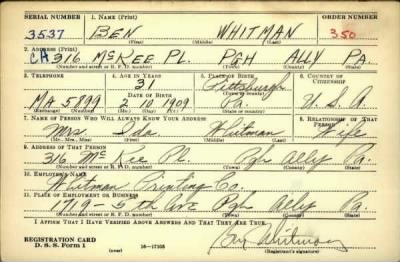 SERIAL NUMBER 1. NAME (Print) ORDER NUMBER
3537 BEN WHITMAN 350
(First) (Middle) (Last)
2. ADDRESS (Print)
CA 316 McKEE PL. PGH ALLY PA.
(Number and street or R. F. D. number) (Town) (County) (State)
3. TELEPHONE 4. AGE IN YEARS 5. PLACE OF BIRTH 6. COUNTRY OF CITIZENSHIP
31 Pittsburgh
DATE OF BIRTH (Town or county)
MA 5999 2 10 1909 Pa. U. S. A.
(Exchange) (Number) (Mo.) (Day) (Yr.) (State or country)
7. NAME OF PERSON WHO WILL ALWAYS KNOW YOUR ADDRESS 8. RELATIONSHIP OF THAT PERSON
Mrs. Ida Whitman Wife
(Mr., Mrs., Miss) (First) (Middle) (Last)
9. ADDRESS OF THAT PERSON
316 McKee Pl. Pgh Ally Pa.
(Number and street or R. F. D. number) (Town) (County) (State)
10. EMPLOYER'S NAME
Whitman Printing Co.
11. PLACE OF EMPLOYMENT OR BUSINESS
1719 - 5th Ave Pgh Ally Pa.
(Number and street or R. F. D. number) (Town) (County) (State)
I AFFIRM THAT I HAVE VERIFIED ABOVE ANSWERS AND THAT THEY ARE TRUE.
REGISTRATION CARD
D. S. S. Form 1 (over) 16—17105
Ben Whitman
(Registrant's signature)